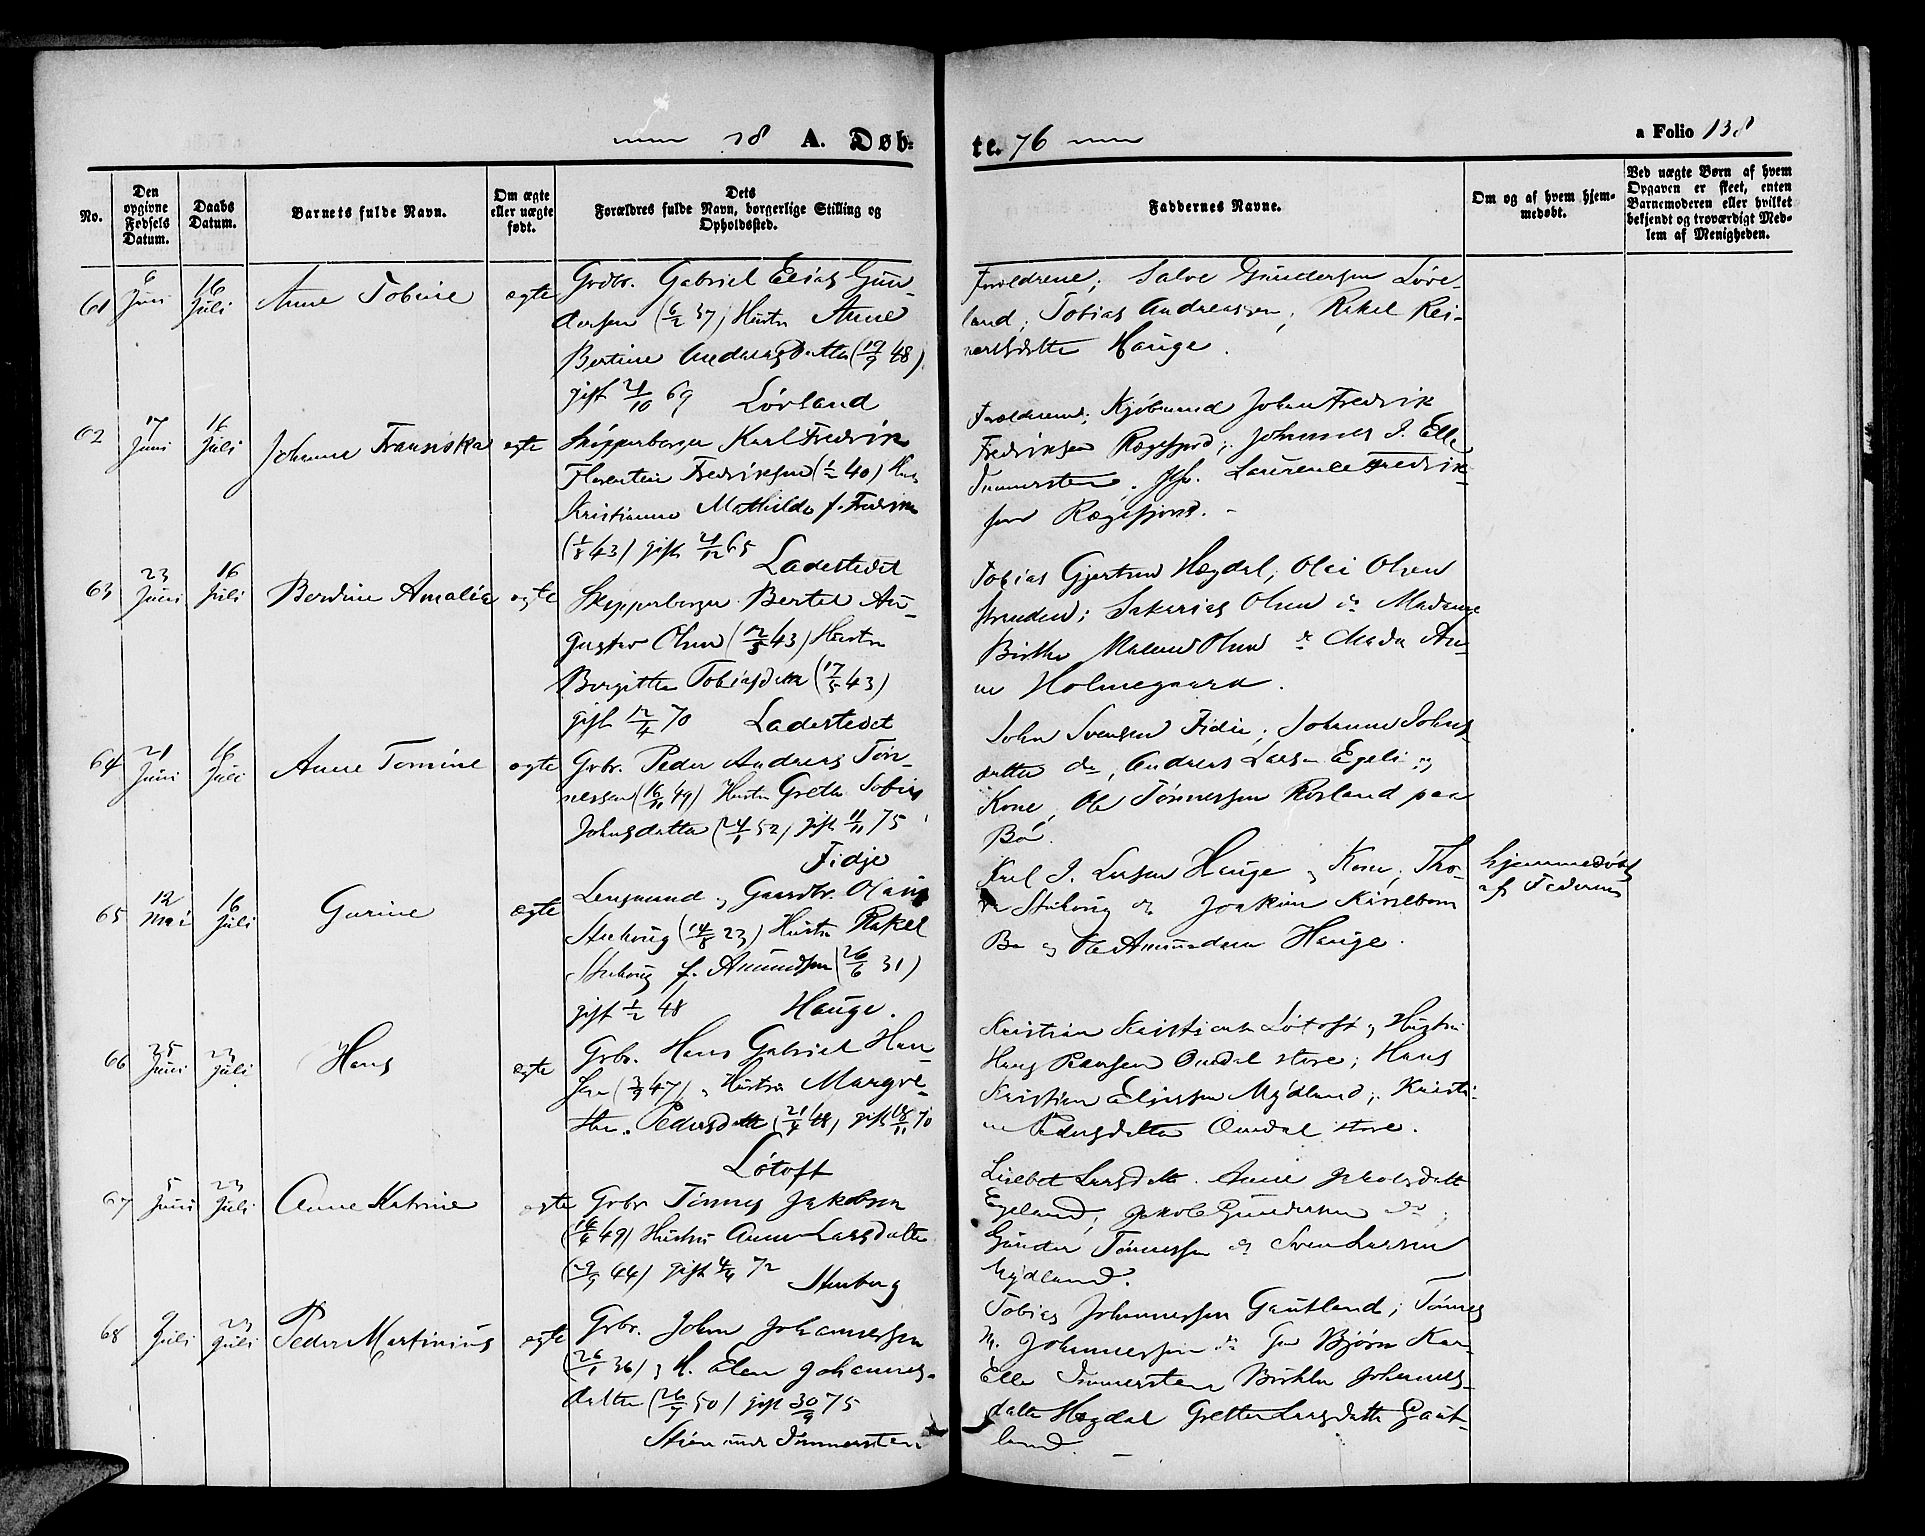 18 A. Døb=
te. 76
a Folio 138
No.
Den opgivne Fødsels Datum.
Daabs Datum.
Barnets fulde Navn.
Om ægte eller uægte født.
Dets Forældres fulde Navn, borgerlige Stilling og Opholdssted.
Faddernes Navne.
Om og af hvem hjem-medøbt.
Ved uægte Børn af hvem Opgaven er skeet, enten Barnemoderen eller hvilket bekjendt og troværdigt Med-lem af Menigheden.
61
6 Juni
16 Juli
Anne Tobine
ægte
Grdbr. Gabriel Elias Gun-
dersen (6/2 37) Hustru Anne
Bertine Andreasdatter (19/9 48)
gift 21/10 69 Lövland
Forældrene; Salve Gundersen Löve-
land; Tobias Andreassen; Rakel Rei-
nertsdatter Hauge.
62
17 Juni
16 Juli
Johanne Fransiska
egte
Skipperborger Karl Fredrik
Florentin Fredriksen (1/2 40) Hus
Kristianne Mathilde f. Fredriks
(1/8 43) gift 21/12 65
Ladestedet
Forældrene; Kjöbmand Johan Fredrik
Fredriksen Rægefjord; Johannes J. Elle
Immersten. Laurentse Fredrik-
sen Rægefjord.
63
23 Juni
16 Juli
Berdine Amalia
egte
Skipperborger Bertel Au-
gustav Olsen (12/5 43) Hustru
Birgitte Tobiasdatter (17/5 43)
gift 12/4 70 Ladestedet
Tobias Gjertsen Hægdal; Olei Olsen
Stranden; Sakarias Olsen do Madame
Birthe Malene Olsen & Mada An-
ne Holmegaard.
64
21 Juni
16 Juli
Anne Tomine
egte
Grbr. Peder Andreas Tön-
nessen (16/11 49) Hustru Grethe Sofie
Johnsdatter (24/1 52) gift 11/11 75
Fidje
John Svensen Fidje; Johanne Johns-
datter do, Andreas Larsen Egeli og
Kone, Ole Tönnessen Rosland paa
Bö.
65
12 Mai
16 Juli
Gurine
ægte
Lensmand og Gaardbr. Olaus
Stuhoug (14/8 23) Hustru Rakel
Stuhoug f. Amundsen (26/6 31)
gift 1/2 48 Hauge.
Karl J. Larsen Hauge og Kone, Tho-
ra Stuhoug og Joakim Kirkeborn
Bö og Ole Amundsen Hauge.
hjemmedöbt
af Faderen
66
25 Juni
23 Juli
Hans
egte
Grbr. Hans Gabriel Han-
sen (3/9 47) Hustru Margre-
the Pedersdatter (21/4 48) gift 18/11 70
Lötoft
Kristian Kristiansen Lötoft og Hustru
Hans Hansen Omdal store; Hans
Kristian Eliassen Mydland; Kristi-
ne Pedersdatter Omdal store.
67
5 Juni
23 Juli
Anne Katrine
egte
Grbr Tönnes Jakobsen
(16/4 49) Hustru Anne Larsdatter
(29/9 44) gift 4/4 72 Stuberg
Lisebet Larsdatter. Anne Jakobsdatt
Egeland; Jakob Gundersen do;
Gunder Tönnessen og Sven Larsen
Mydland.
68
9 Juli
23 Juli
Peder Martinius
egte
Grbr. John Johannessen
(26/1 36) og H. Elen Johannes-
datter (26/9 50) gift 30/9 75
Stien under Immersten
Tobias Johannessen Gautland; Tönnes
M. Johannessen do Björn Kar
Elle Immersten Birthe Johannes-
datter Hægdal Grethe Larsdatte Gaut-
land.